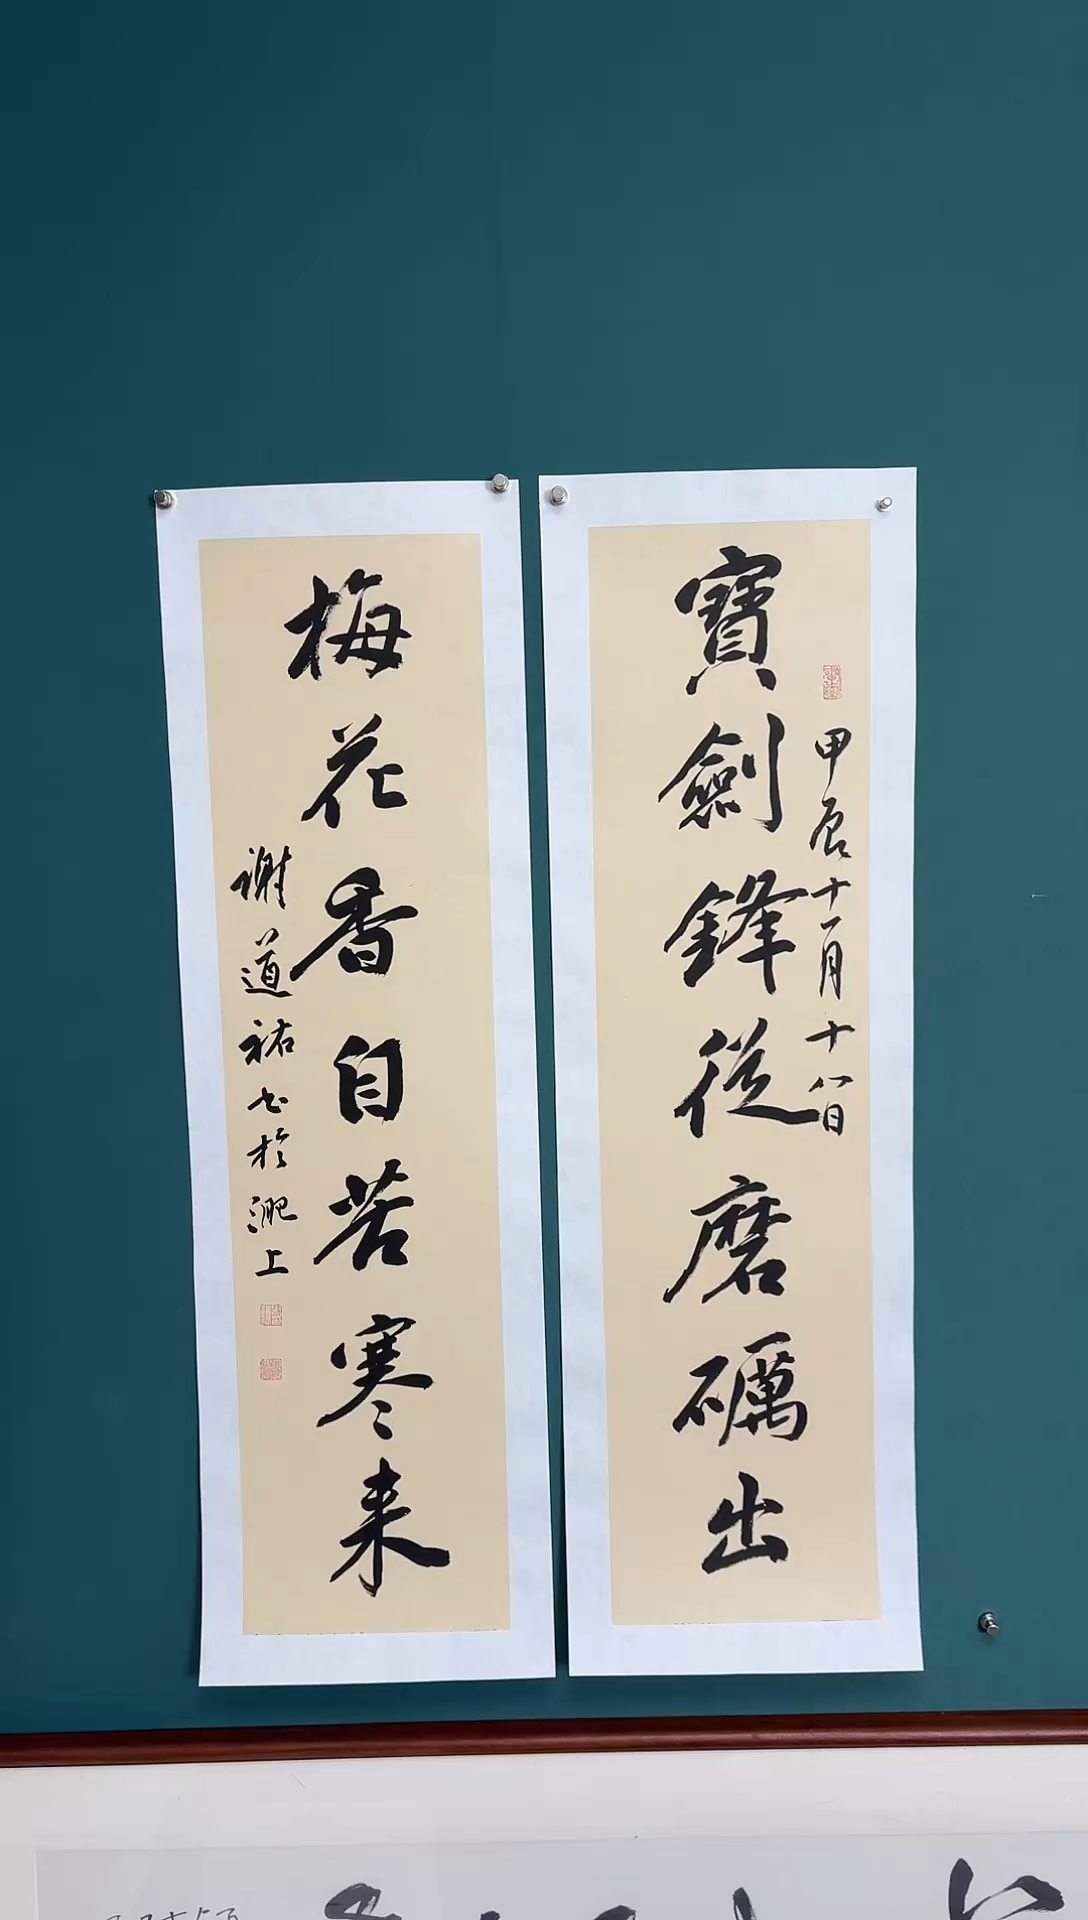 寶劍鋒從磨礪出
甲辰十一月十八日
梅花香自苦寒来
謝道祐书於淝上